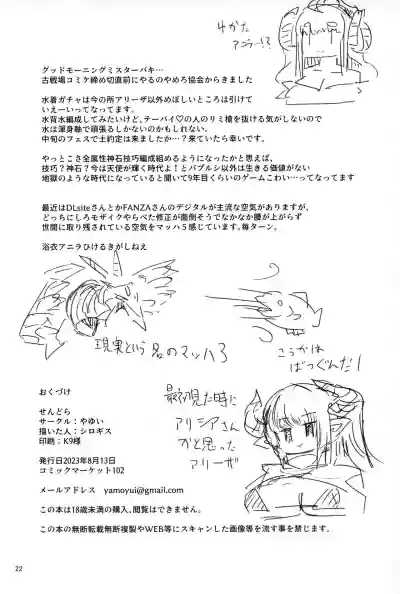 ゆかた
アニラー!?
グッドモーニングミスターバキ…
古戦場コミケ締め切直前にやるのやめろ協会からきました
水着ガチャは今の所アリーザ以外めぼしいところは引けて
いえーいってなってます。
水背水編成してみたいけど、テーバイ♡の人のリミ槍を抜ける気がしないので
水は渾身軸で頑張るしかないのかもしれない。
中旬のフェスで土約定は来ましたか…？来ていたら幸いです。
やっとこさ全属性神石技巧編成組めるようになったかと思えば、
技巧？神石？今は天使が輝く時代よ！とバブルシ以外は生きる価値がない
地獄のような時代になっていると聞いて9年目くらいのゲームこわい…ってなってます
最近はDLsiteさんとかFANZAさんのデジタルが主流な空気がありますが、
どっちにしろモザイクやらべた修正が面倒そうでなかなか腰が上がらず
世間に取り残されている空気をマッハ５感じています。毎ターン。
浴衣アニラひけるきがしねえ
現実という名のマッハ3
こうかは
ばつぐんだ!
おくづけ
せんどら
サークル：やゆい
描いた人：シロギス
印刷：K9様
発行日2023年8月13日
コミックマーケット102
メールアドレス　yamoyui@gmail.com
最初見た時に
アリシアさん
かと思った
アリーザ
この本は18歳未満の購入、閲覧はできません。
この本の無断転載無断複製やWEB等にスキャンした画像等を流す事を禁じます。
22